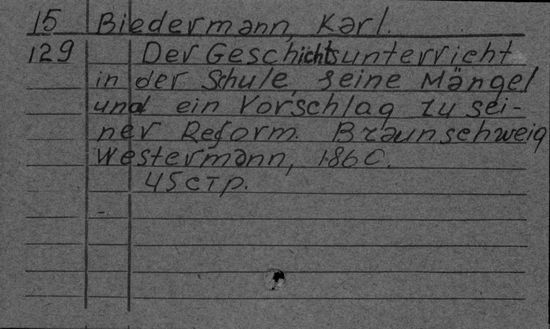 15 Biedermann, Karl.
129 Der Geschichtsunterricht
in der Schule, seine Mängel
und ein Vorschlag zu sei-
ner Reform. Braunschweig
Westermann, 1860.
45 стр.